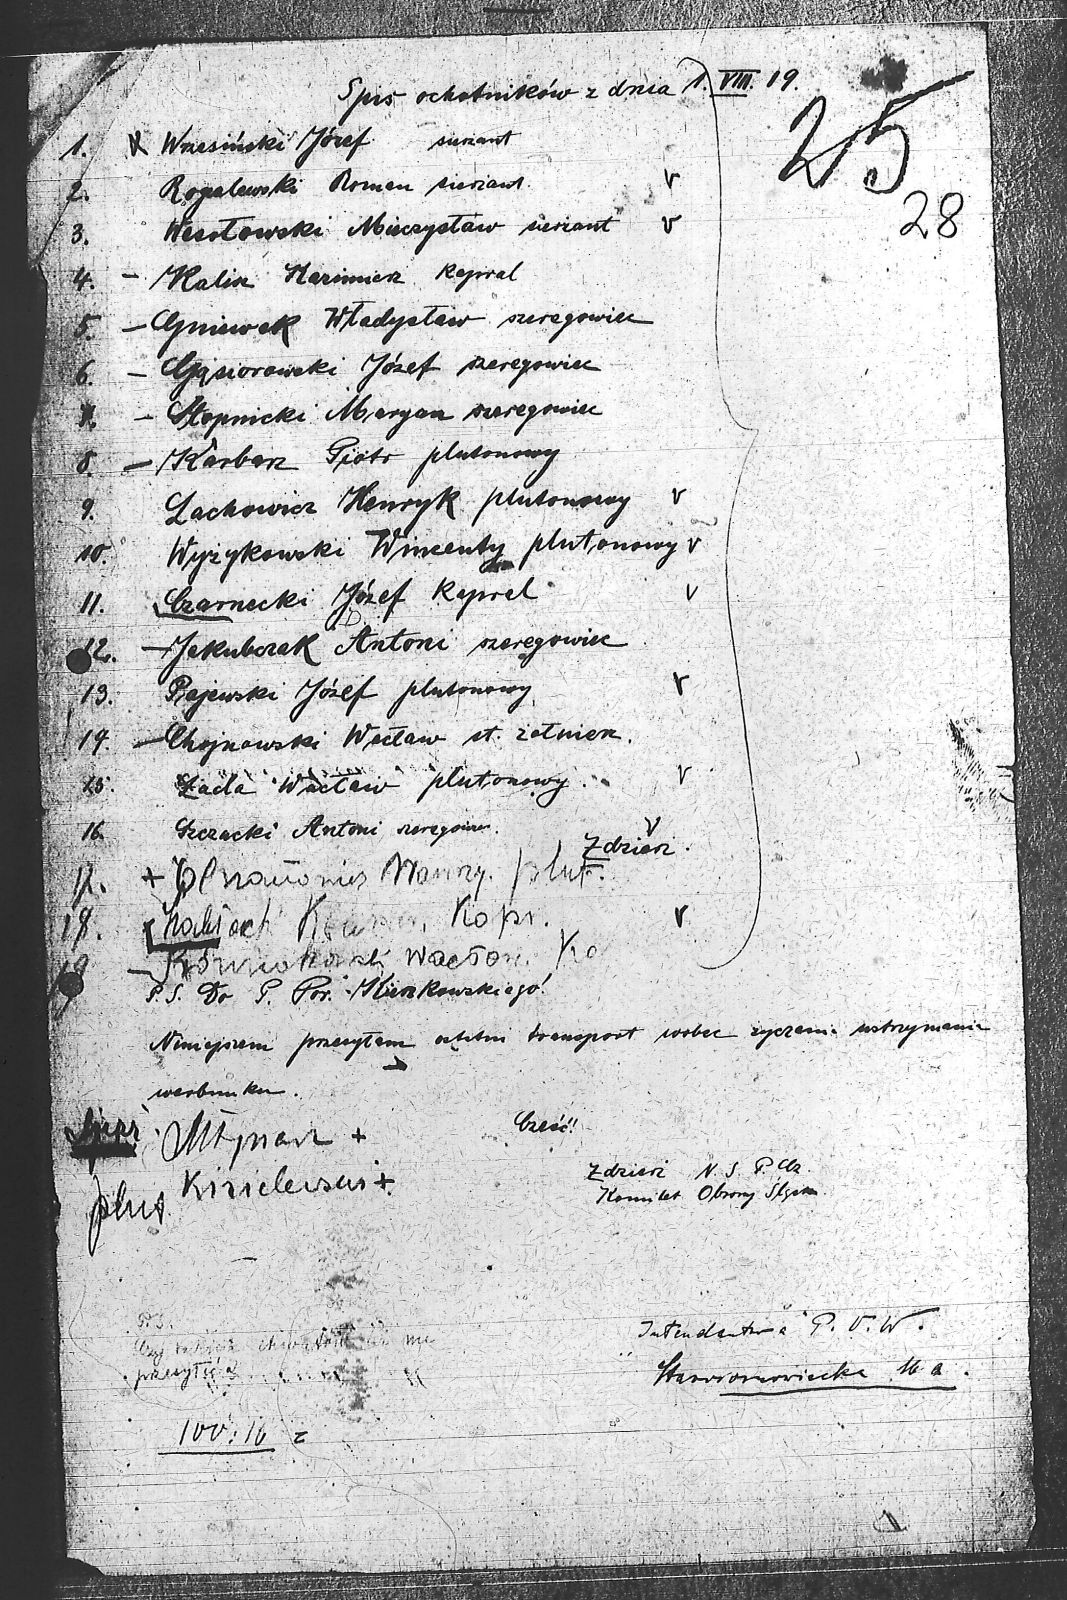 Spis ochotników z dnia 1. VIII. 19.
25
28
1. Wrzesiński Józef sierżant
2. Rogalewski Roman sierżant v
3. Wesołowski Mieczysław sierżant v
4. - Kalisz Kazimierz kapral
5. - Gniewek Władysław szeregowiec
6. - Gąsiorowski Józef szeregowiec
7. - Stopnicki Maryan szeregowiec
8. - Karbarz Piotr plutonowy
9. Lachowicz Henryk plutonowy v
10. Wyżykowski Wincenty plutonowy v
11. Czarnecki Józef kapral v
12. - Jakubczak Antoni szeregowiec
13. Pajewski Józef plutonowy v
14. - Chojnowski Wacław st. żołnierz.
15. Łada Wacław plutonowy. v
16. Szczacki Antoni szeregowiec. v
Zdzierz.
17. + Wawrzy. plut.
18. Kapr. v
19 - Wacław. Ka
P.S. Do P. Por. Kierzkowskiego!
Niniejszem przesyłam ostatni transport wobec życzenia wstrzymania
werbunku.
Młynarz +
Cześć!
plut
Zdzierz N. S. P. Cz.
Komitet Obrony Śląska
P.S.
Intendantura P. O. W.
Staroromowiecka 16 a.
100:16 =